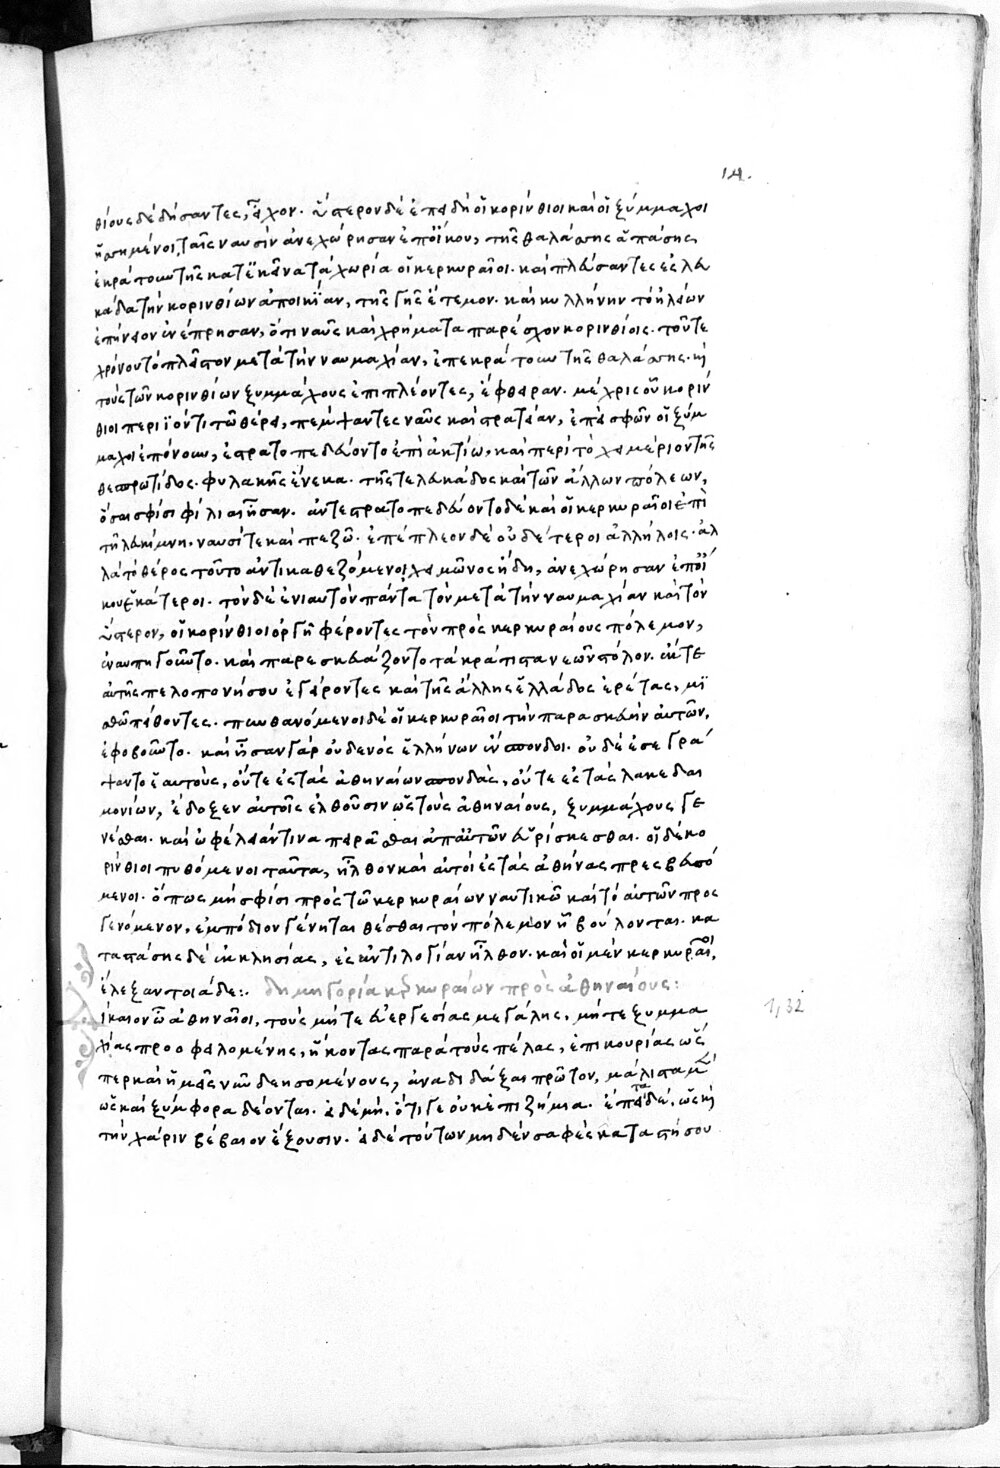 14.
θίους δὲ δήσαντες, εἶχον. ὕστερον δὲ ἐπειδὴ οἱ κορίνθιοι καὶ οἱ ξύμμαχοι
ἡσσημένοι ταῖς ναυσὶν ἀνεχώρησαν ἐπ' οἴκου, τῆς θαλάσσης ἁπάσης
ἐκράτουν τῆς κατ' ἐκεῖνα τὰ χωρία οἱ κερκυραῖοι. καὶ πλεύσαντες ἐς λευ
κάδα τὴν κορινθίων ἀποικίαν, τῆς γῆς ἔτεμον. καὶ κυλλήνην τὸ ἠλείων
ἐπίνειον ἐνέπρησαν, ὅτι ναῦς καὶ χρήματα παρέσχον κορινθίοις. τοῦ τε
χρόνου τὸ πλεῖστον μετὰ τὴν ναυμαχίαν, ἐπεκράτουν τῆς θαλάσσης. καὶ
τοὺς τῶν κορινθίων ξυμμάχους ἐπιπλέοντες, ἔφθειραν. μέχρις οὗ κορίν
θιοι περιϊόντι τῶ θέρει, πέμψαντες ναῦς καὶ στρατείαν, ἐπεὶ σφῶν οἱ ξύμ
μαχοι ἐπόνουν, ἐστρατοπεδεύοντο ἐπὶ ἀκτίω, καὶ περὶ τὸ χειμέριον τῆς
θεσπρωτίδος. φυλακῆς ἕνεκα. τῆς τε λευκάδος καὶ τῶν ἄλλων πόλεων,
ὅσαι σφίσι φίλιαι ἦσαν. ἀντεστρατοπεδεύοντο δὲ καὶ οἱ κερκυραῖοι ἐπὶ
τῆ λευκίμνη. ναυσί τε καὶ πεζῶ. ἐπέπλεον δὲ οὐδέτεροι ἀλλήλοις. ἀλ
λὰ τὸ θέρος τοῦτο ἀντικαθεζόμενοι χειμῶνος ἤδη, ἀνεχώρησαν ἐπ' οἴ
κου ἑκάτεροι. τὸν δὲ ἐνιαυτὸν πάντα τὸν μετὰ τὴν ναυμαχίαν καὶ τὸν
ὕστερον, οἱ κορίνθιοι ὀργῆ φέροντες τὸν πρὸς κερκυραίους πόλεμον,
ἐναυπηγοῦντο. καὶ παρεσκευάζοντο τὰ κράτιστα νεῶν στόλον. ἔκ τε
αὐτῆς πελοπονήσου ἐγείροντες καὶ τῆς ἄλλης ἑλλάδος ἐρέτας, μι
σθῶ πείθοντες. πυνθανόμενοι δὲ οἱ κερκυραῖοι τὴν παρασκευὴν αὐτῶν,
ἐφοβοῦντο. καὶ ἦσαν γὰρ οὐδενὸς ἑλλήνων ἔνσπονδοι. οὐδὲ ἐσεγρά
ψαντο ἑαυτοὺς, οὔτε ἐς τὰς ἀθηναίων σπονδὰς, οὔτε ἐς τὰς λακεδαι
μονίων, ἔδοξεν αὐτοῖς ἐλθοῦσιν ὡς τοὺς ἀθηναίους, ξυμμάχους γε
νέσθαι. καὶ ὠφέλειάν τινα πειρᾶσθαι ἀπ' αὐτῶν εὑρίσκεσθαι. οἱ δὲ κο
ρίνθιοι πυθόμενοι ταῦτα, ἦλθον καὶ αὐτοὶ ἐς τὰς ἀθήνας πρεσβευσό
μενοι. ὅπως μὴ σφίσι πρὸς τῶ κερκυραίων ναυτικῶ καὶ τὸ αὐτῶν προς
γενόμενον, ἐμπόδιον γένηται θέσθαι τὸν πόλεμον ἧ βούλονται. κα
ταστάσης δὲ ἐκκλησίας, ἐς ἀντιλογίαν ἦλθον. καὶ οἱ μὲν κερκυραῖοι,
ἔλεξαν τοιάδε:. δημηγορία κερκυραίων πρὸς ἀθηναίους:
1,32
ίκαιον ὦ ἀθηναῖοι, τοὺς μήτε εὐεργεσίας μεγάλης, μήτε ξυμμα
χίας προοφειλομένης, ἥκοντας παρὰ τοὺς πέλας, ἐπικουρίας ὥς
περ καὶ ἡμεῖς νῦν δεησομένους, ἀναδιδάξαι πρῶτον, μάλιστα μὲν
ὡς καὶ ξύμφορα δέονται. εἰ δὲ μὴ, ὅτι γε οὐκ ἐπιζήμια. ἔπειτα δὲ, ὡς καὶ
τὴν χάριν βέβαιον ἕξουσιν. εἰ δὲ τούτων μηδὲν σαφὲς καταστήσου